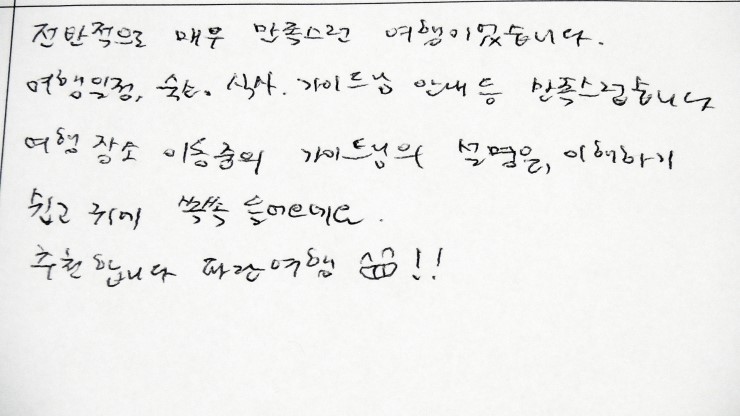 전반적으로 매우 만족스런 여행이었습니다.
여행일정, 숙소, 식사, 가이드님 안내 등 만족스럽습니다
여행 장소 이동중의 가이드님의 설명은, 이해하기
쉽고 귀에 쏙쏙 들어오네요.
추천합니다 파란여행 !!